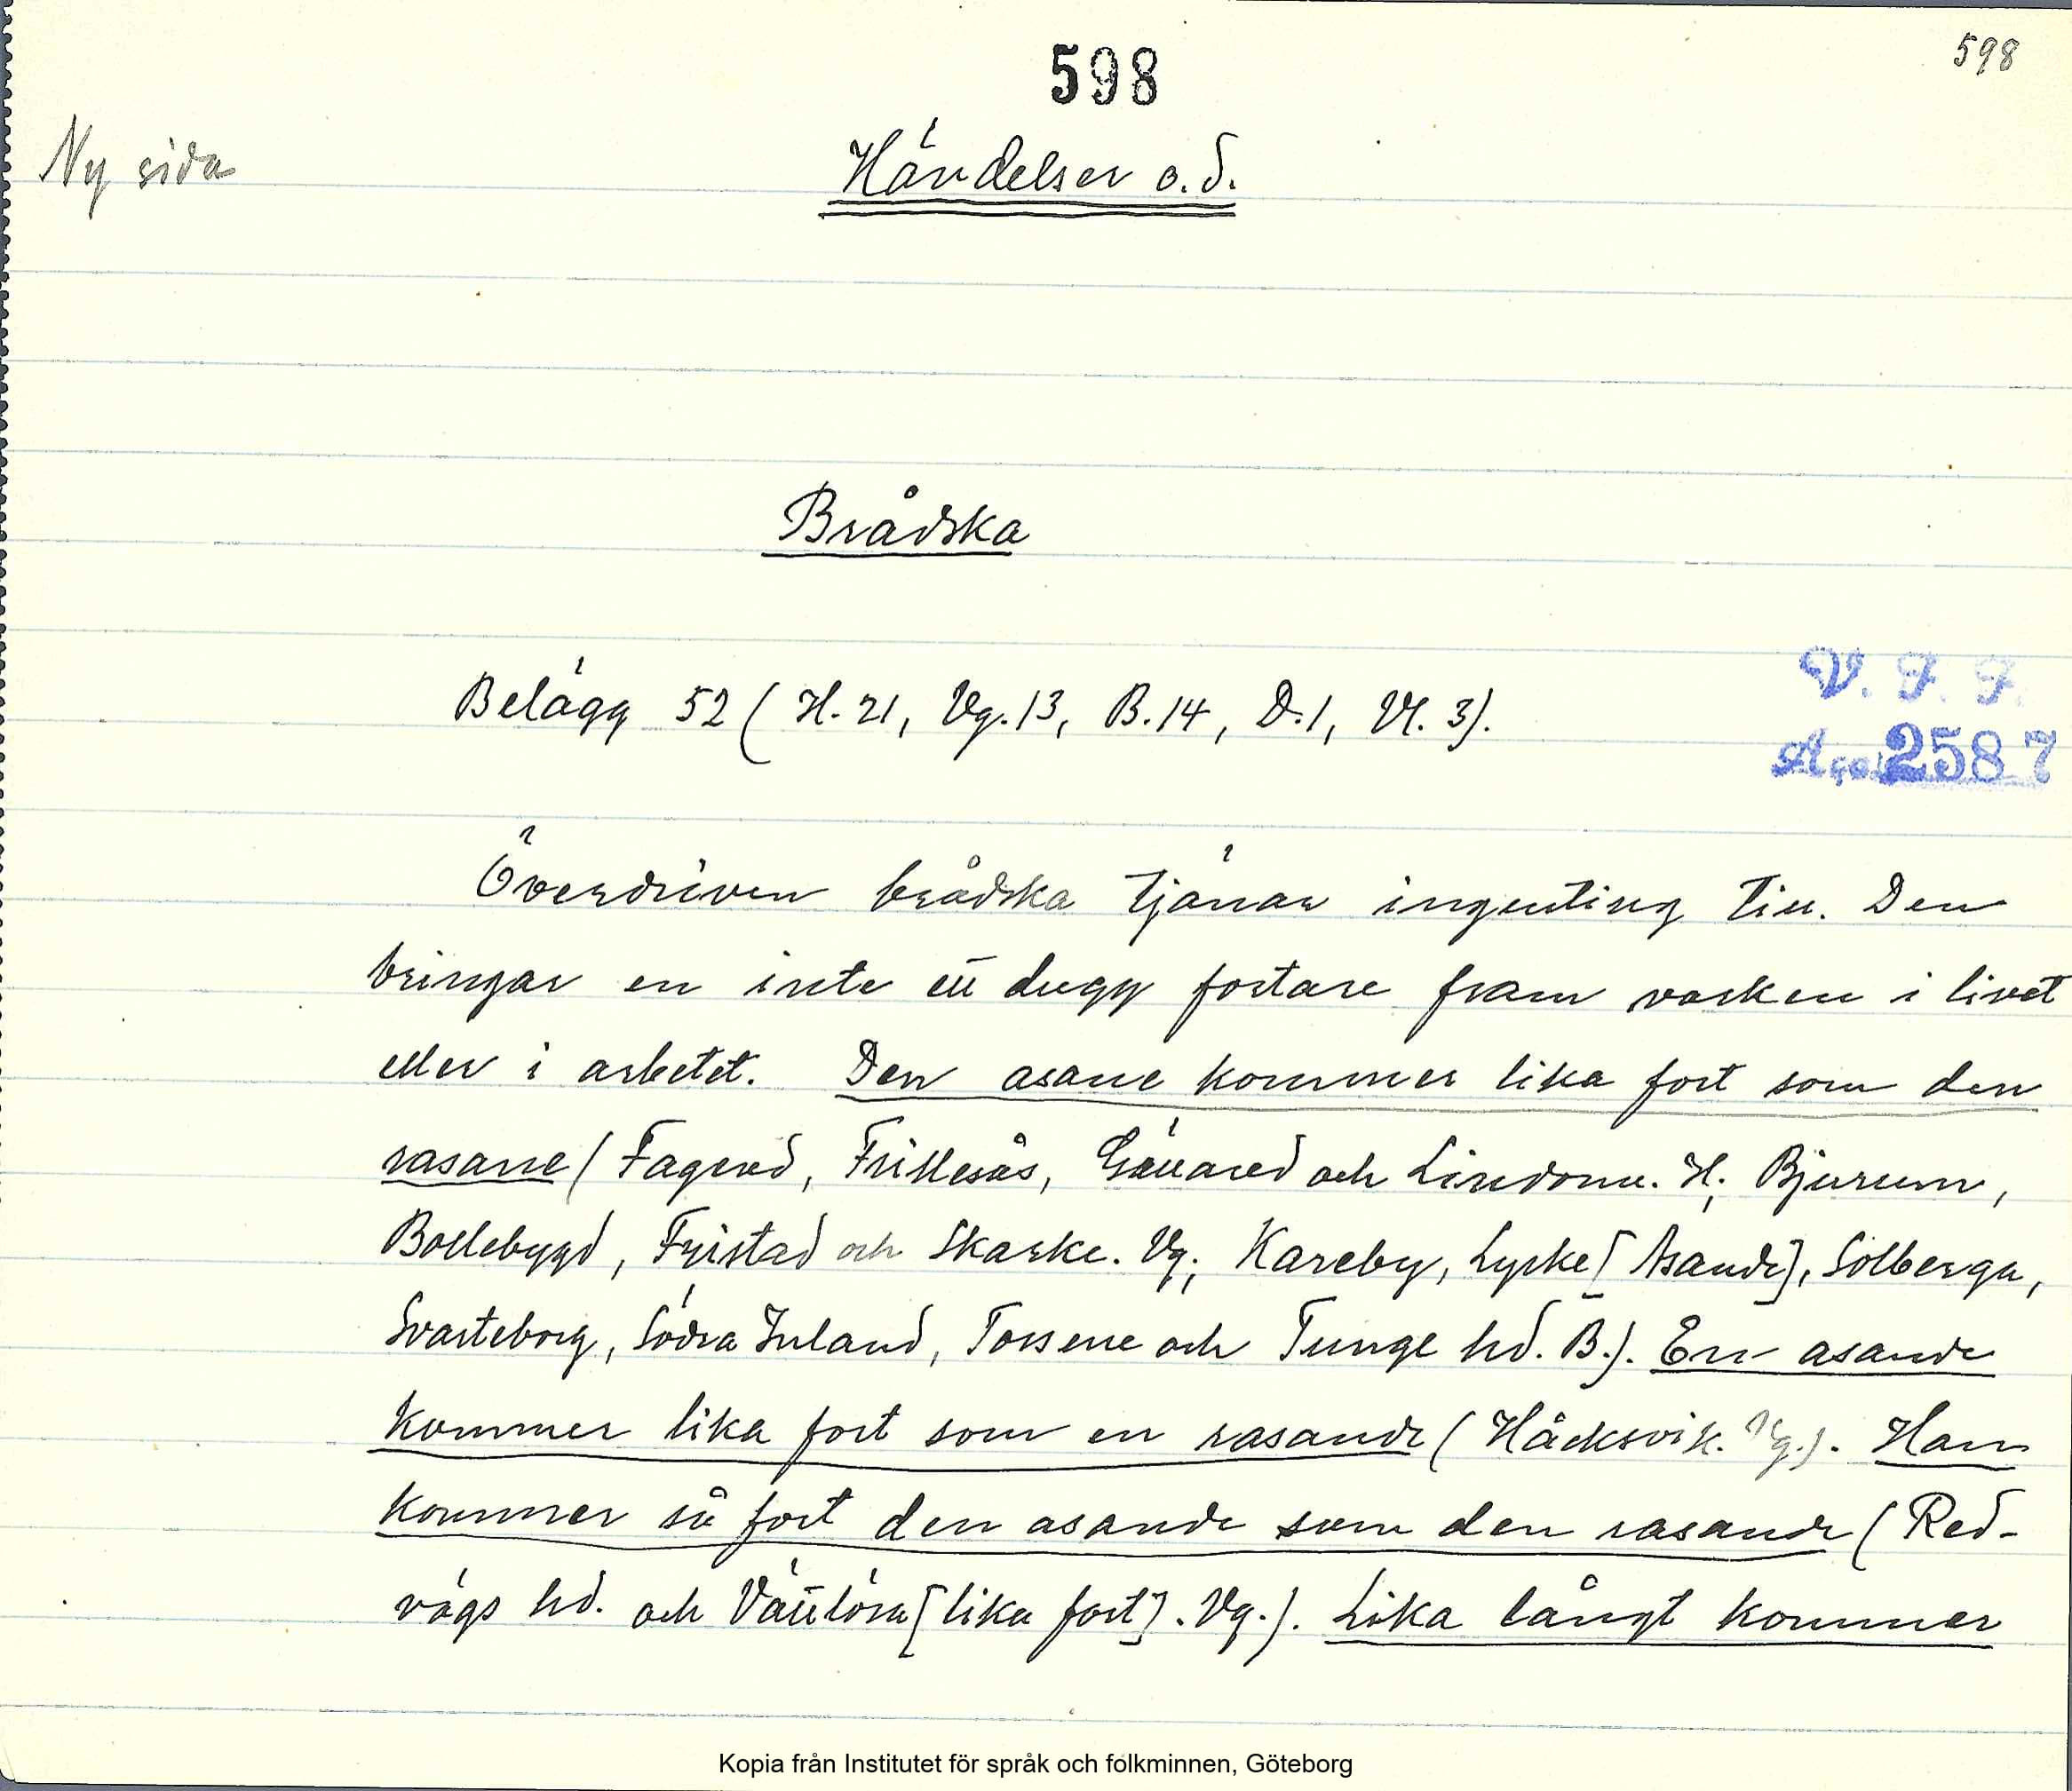 598
598
Ny sida
Händelser o.d.
Brådska
Belägg 52 (H. 21, Vg. 13, B. 14, D. 1, Vl. 3).
V. F. F.
Acc. 2587
Överdriven brådska tjänar ingenting till. Den
bringar en inte ett dugg fortare fram varken i livet
eller i arbetet. Den asane kommer lika fort som den
rasane (Fagered, Frillesås, Gällared och Lindome. H; Bjurum,
Bollebygd, Fristad och Skarke. Vg; Kareby, Lycke [Asande], Solberga,
Svarteborg, Södra Inland, Tossene och Tunge hd. B.). En asande
kommer lika fort som en rasande (Håcksvik. Vg.). Han
kommer så fort den asande som den rasande (Red-
vägs hd. och Vättlösa [lika fort]. Vg.). Lika långt kommer
Kopia från Institutet för språk och folkminnen, Göteborg